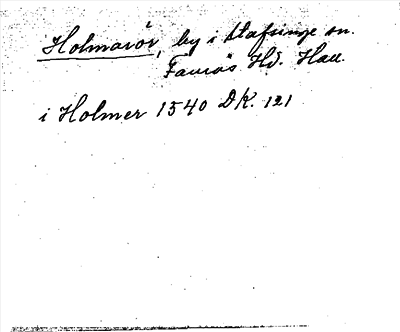 Holmarör, by i Stafsinge sn.
Faurås Hd. Hall.
i Holmer 1540 DK. 121